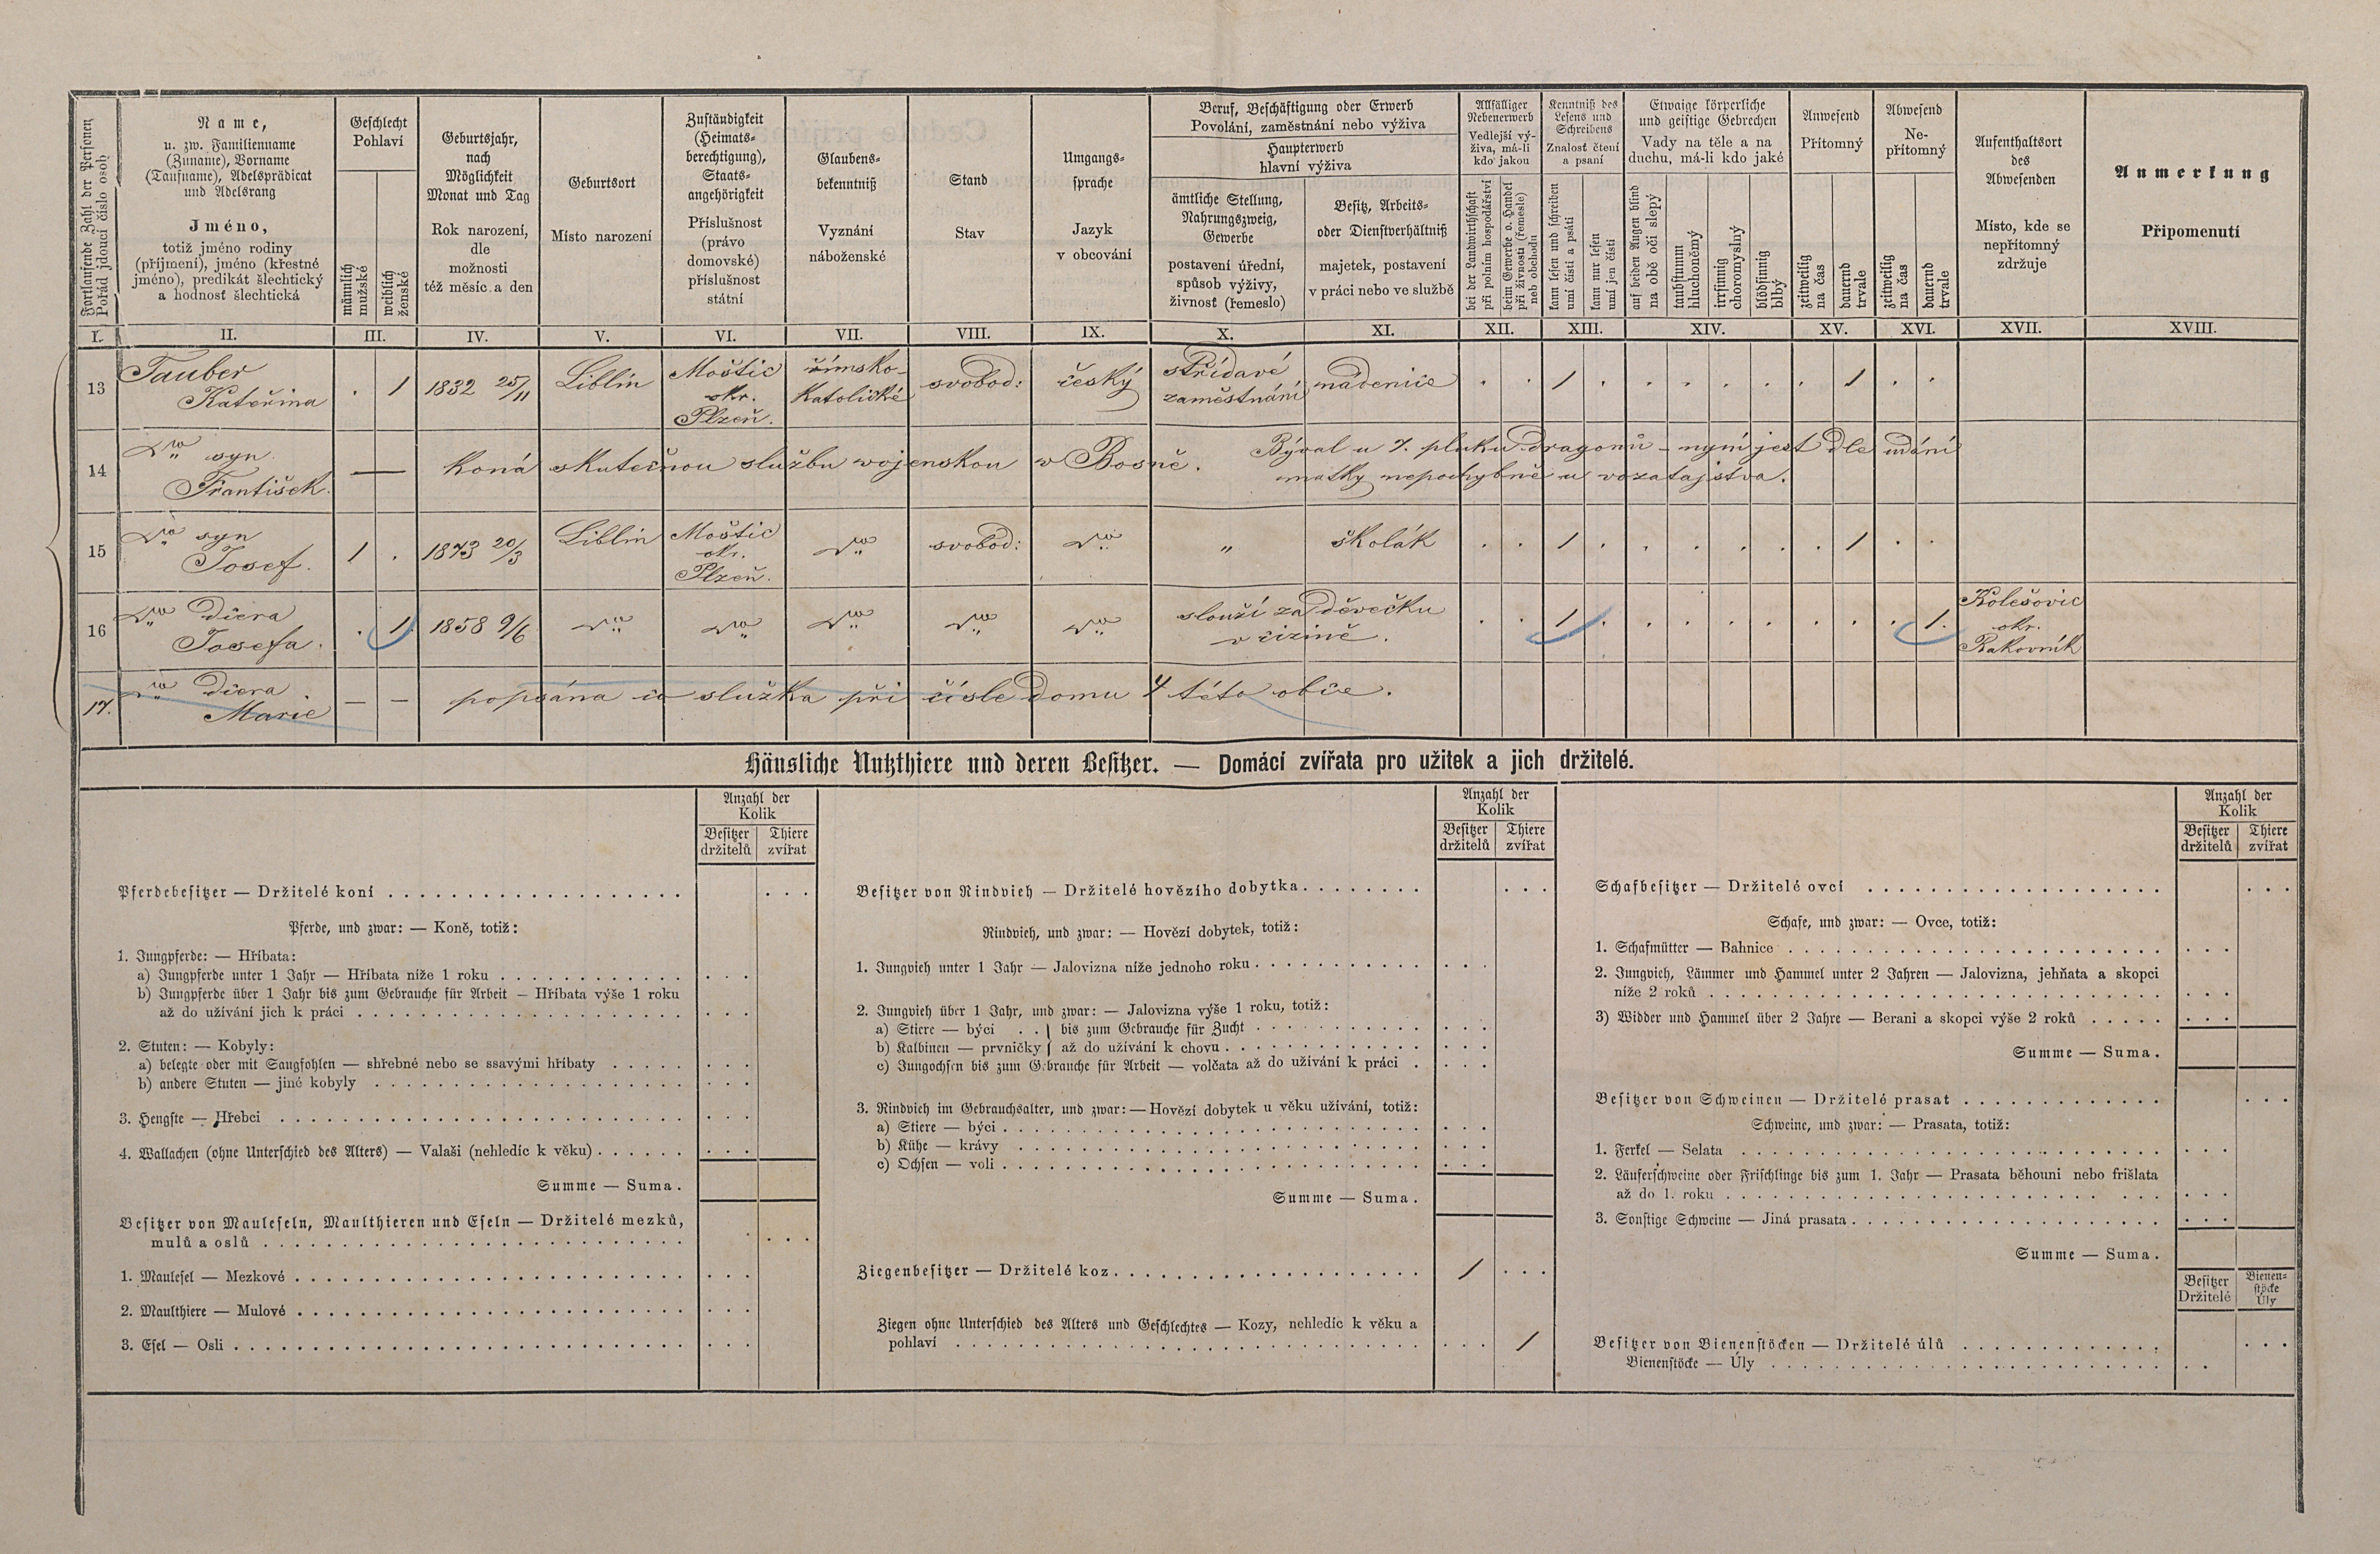 Fortlaufende Zahl der Personen
Pořád jdoucí číslo osob
Name,
u. zw. Familienname
(Zuname), Vorname
(Taufname), Adelsprädicat
und Adelsrang
Jméno,
totiž jméno rodiny
(příjmení), jméno (křestné
jméno), predikát šlechtický
a hodnost šlechtická
Geschlecht
Pohlaví
männlich
mužské
weiblich
ženské
Geburtsjahr,
nach
Möglichkeit
Monat und Tag
Rok narození,
dle
možnosti
též měsíc a den
Geburtsort
Místo narození
Zuständigkeit
(Heimats-
berechtigung),
Staats-
angehörigkeit
Příslušnost
(právo
domovské)
příslušnost
státní
Glaubens-
bekenntniß
Vyznání
náboženské
Stand
Stav
Umgangs-
sprache
Jazyk
v obcování
Beruf, Beschäftigung oder Erwerb
Povolání, zaměstnání nebo výživa
Haupterwerb
hlavní výživa
ämtliche Stellung,
Nahrungszweig,
Gewerbe
postavení úřední,
spůsob výživy,
živnost (řemeslo)
Besitz, Arbeits-
oder Dienstverhältniß
majetek, postavení
v práci nebo ve službě
Allfälliger
Nebenerwerb
Vedlejší vý-
živa, má-li
kdo jakou
bei der Landwirthschaft
při polním hospodářství
beim Gewerbe o. Handel
při živnosti (řemesle)
neb obchodu
Kenntniß des
Lesens und
Schreibens
Znalost čtení
a psaní
kann lesen und schreiben
umí čísti a psáti
kann nur lesen
umí jen čísti
Etwaige körperliche
und geistige Gebrechen
Vady na těle a na
duchu, má-li kdo jaké
auf beiden Augen blind
na obě oči slepý
taubstumm
hluchoněmý
irrsinnig
choromyslný
blödsinnig
blbý
Anwesend
Přítomný
zeitweilig
na čas
dauernd
trvale
Abwesend
Ne-
přítomný
zeitweilig
na čas
dauernd
trvale
Aufenthaltsort
des
Abwesenden
Místo, kde se
nepřítomný
zdržuje
Anmerkung
Připomenutí
I. II. III. IV. V. VI. VII. VIII. IX. X. XI. XII. XIII. XIV. XV. XVI. XVII. XVIII.
13 Tauber Kateřina . 1 1832 25/11 Liblín Moštic okr. Plzeň. římsko-katolické svobod: český střídavé zaměstnání nádenice . . 1 . . . . . . 1 . .
14 dto syn František. — koná skutečnou službu wojenskou w Bosně. Býval u 7. pluku dragonů – nyní jest dle udání
matky nepochybně u vozatajstva.
15 dto syn Josef. 1 . 1873 20/3 Liblin Moštic okr. Plzeň. dto svobod: dto „ školák . . 1 . . . . . . 1 . .
16 dto dcera Josefa. . 1. 1858 9/6 dto dto dto dto dto slouží za děvečku v cizině. . . 1 . . . . . . . . 1. Kolešovic okr. Rakovník
17. dto dcera Marie — — popsána co služka při čísle domu 4 této obce.
Häusliche Nutzthiere und deren Besitzer. — Domácí zvířata pro užitek a jich držitelé.
Anzahl der
Kolik
Besitzer
držitelů
Thiere
zvířat
Pferdebesitzer — Držitelé koní
Pferde, und zwar: — Koně, totiž:
1. Jungpferde: — Hříbata:
a) Jungpferde unter 1 Jahr — Hříbata níže 1 roku
b) Jungpferde über 1 Jahr bis zum Gebrauche für Arbeit — Hříbata výše 1 roku
až do užívání jich k práci
2. Stuten: — Kobyly:
a) belegte oder mit Saugfohlen — shřebné nebo se ssavými hříbaty
b) andere Stuten — jiné kobyly
3. Hengste — Hřebci
4. Wallachen (ohne Unterschied des Alters) — Valaši (nehledíc k věku)
Summe — Suma.
Besitzer von Mauleseln, Maulthieren und Eseln — Držitelé mezků,
mulů a oslů
1. Maulesel — Mezkové
2. Maulthiere — Mulové
3. Esel — Osli
Anzahl der
Kolik
Besitzer
držitelů
Thiere
zvířat
Besitzer von Rindvieh — Držitelé hovězího dobytka
Rindvieh, und zwar: — Hovězí dobytek, totiž:
1. Jungvieh unter 1 Jahr — Jalovizna níže jednoho roku
2. Jungvieh über 1 Jahr, und zwar: — Jalovizna výše 1 roku, totiž:
a) Stiere — býci . . } bis zum Gebrauche für Zucht
b) Kalbinen — prvničky } až do užívání k chovu
c) Jungochsen bis zum Gebrauche für Arbeit — volčata až do užívání k práci
3. Rindvieh im Gebrauchsalter, und zwar: — Hovězí dobytek u věku užívání, totiž:
a) Stiere — býci
b) Kühe — krávy
c) Ochsen — voli
Summe — Suma.
Ziegenbesitzer — Držitelé koz 1
Ziegen ohne Unterschied des Alters und Geschlechtes — Kozy, nehledíc k věku a
pohlaví 1
Anzahl der
Kolik
Besitzer
držitelů
Thiere
zvířat
Schafbesitzer — Držitelé ovcí
Schafe, und zwar: — Ovce, totiž:
1. Schafmütter — Bahnice
2. Jungvieh, Lämmer und Hammel unter 2 Jahren — Jalovizna, jehňata a skopci
níže 2 roků
3) Widder und Hammel über 2 Jahre — Berani a skopci výše 2 roků
Summe — Suma.
Besitzer von Schweinen — Držitelé prasat
Schweine, und zwar: — Prasata, totiž:
1. Ferkel — Selata
2. Läuferschweine oder Frischlinge bis zum 1. Jahr — Prasata běhouni nebo frišlata
až do 1. roku
3. Sonstige Schweine — Jiná prasata
Summe — Suma.
Besitzer
Držitelé
Bienen-
stöcke
Úly
Besitzer von Bienenstöcken — Držitelé úlů
Bienenstöcke — Úly